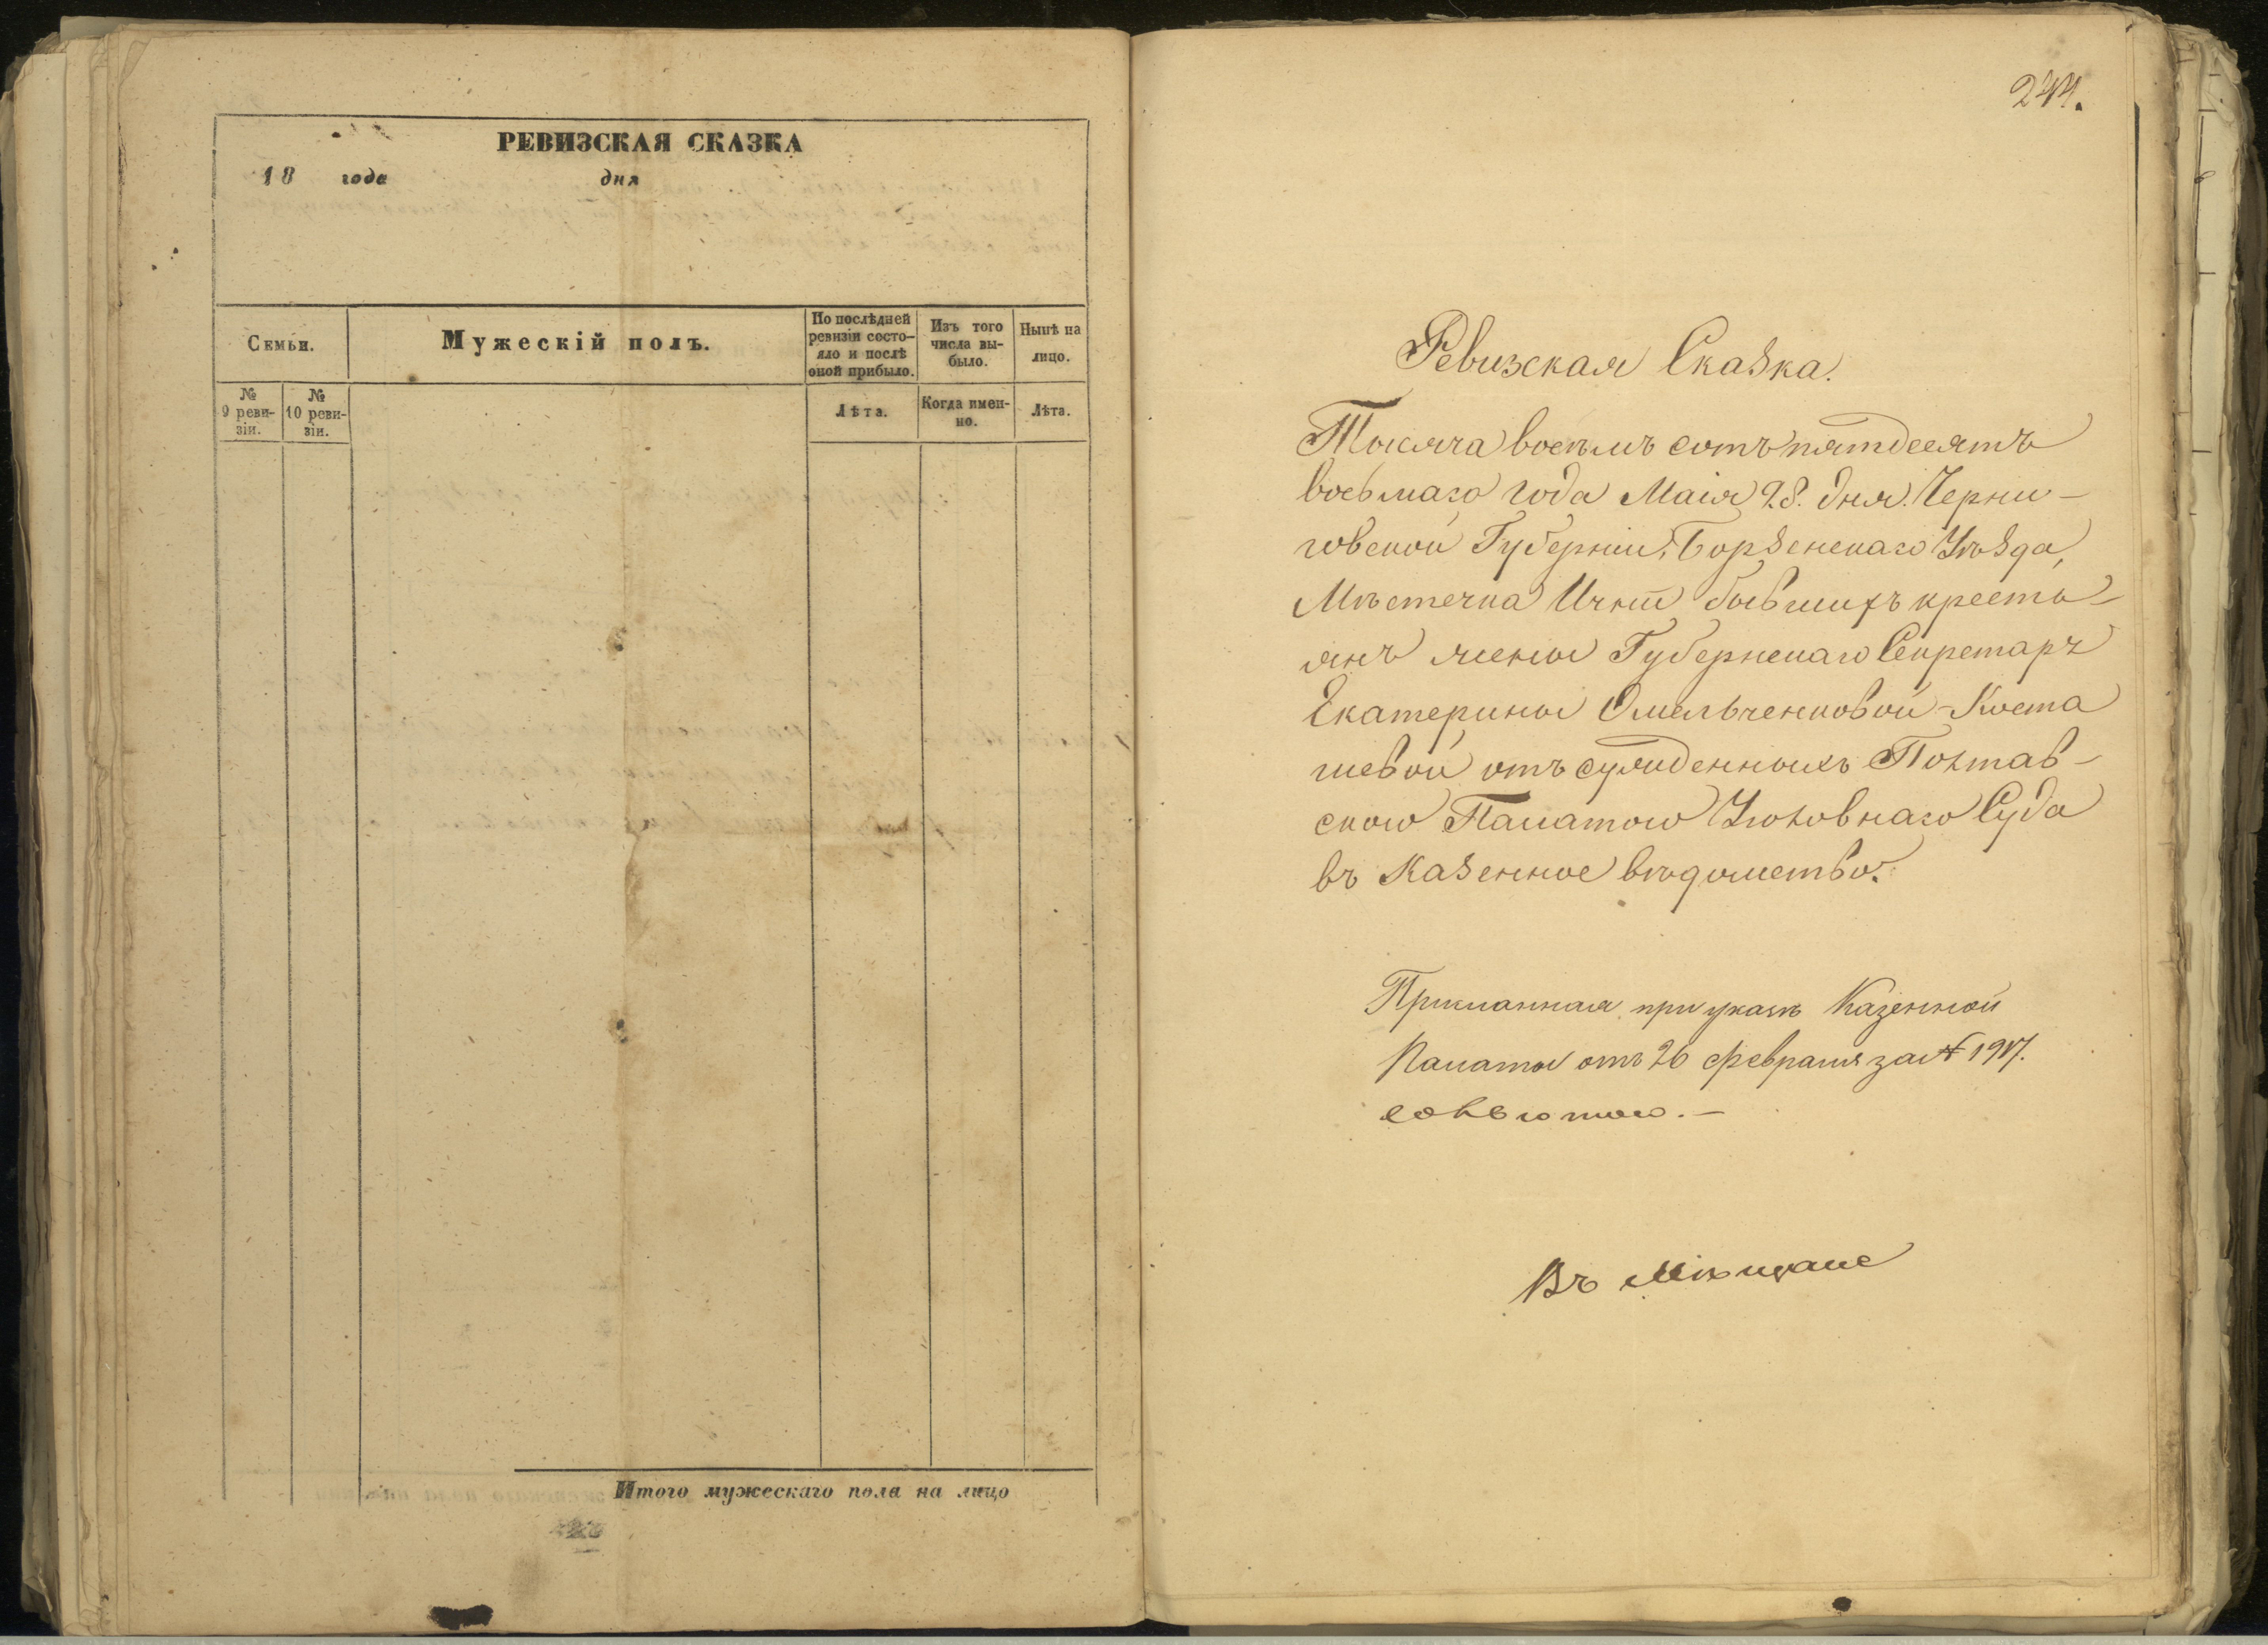 РЕВИЗСКАЯ СКАЗКА
18 года дня
Семьи.
Мужескій полъ.
По послѣдней
ревизіи состо-
яло и послѣ
оной прибыло.
Изъ того
числа вы-
было.
Нынѣ на
лицо.
№
9 реви-
зіи.
№
10 реви-
зіи.
Лѣта.
Когда имен-
но.
Лѣта.
Итого мужескаго пола на лицо
244.
Ревизская Сказка.
Тысяча восемь сотъ пятдесятъ
восьмаго года Маія 28. дня. Черни-
говской Губерніи, Борзенскаго Уѣзда,
Мѣстечка Ични бывшихъ кресть-
янъ жены Губернскаго Секретаря
Екатерины Омельченковой-Коста
шевой отъ сужденныхъ Полтав-
скою Палатою Уголовнаго Суда
въ Казенное вѣдомство.
Присланная при указѣ Казенной
Палаты отъ 26 февраля за №
Въ Мѣщане